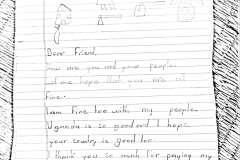 Dear Friend,
How are you and your people.
and me hope that you are all
Fine.
I am Fine too with my people
Uganda is so good and I hope
your coutry is good too
thank you so much for paying my